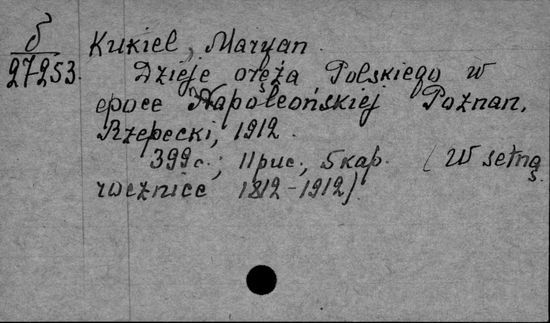 б
27253.
Kukiel, Maryan.
Dzieje oręża Polskiego w
epoce Napoleońskiej Poznan,
Rzepecki, 1912.
399 с.; 11 рис., 5 кар. (W setną
rocznice 1812-1912)